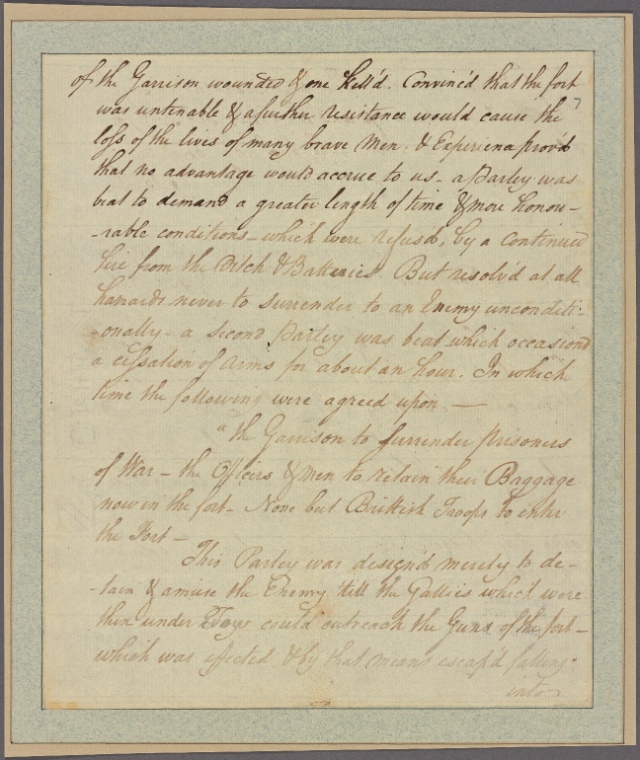 of the Garrison wounded & one kill'd. Convinc'd that the fort
7
was untenable & a further resistance would cause the
loss of the lives of many brave Men. & Experience prov'd
that no advantage would accrue to us - a Parley was
beat to demand a greater length of time & more honou-
-rable conditions - which were refus'd, by a continued
fire from the Ditch & Batteries. But resolv'd at all
hazards never to surrender to an Enemy unconditi-
-onally - a second Parley was beat which occasiond
a cessation of Arms for about an hour. In which
time the following were agreed upon —
"the Garrison to surrender prisoners
of War - the Officers & Men to retain their Baggage
now in the fort - None but Brittish Troops to enter
the Fort —
This Parley was design'd merely to de-
-tain & amuse the Enemy till the Gallies which were
then under could outreach the Guns of the fort -
which was effected & by that means escap'd falling
into